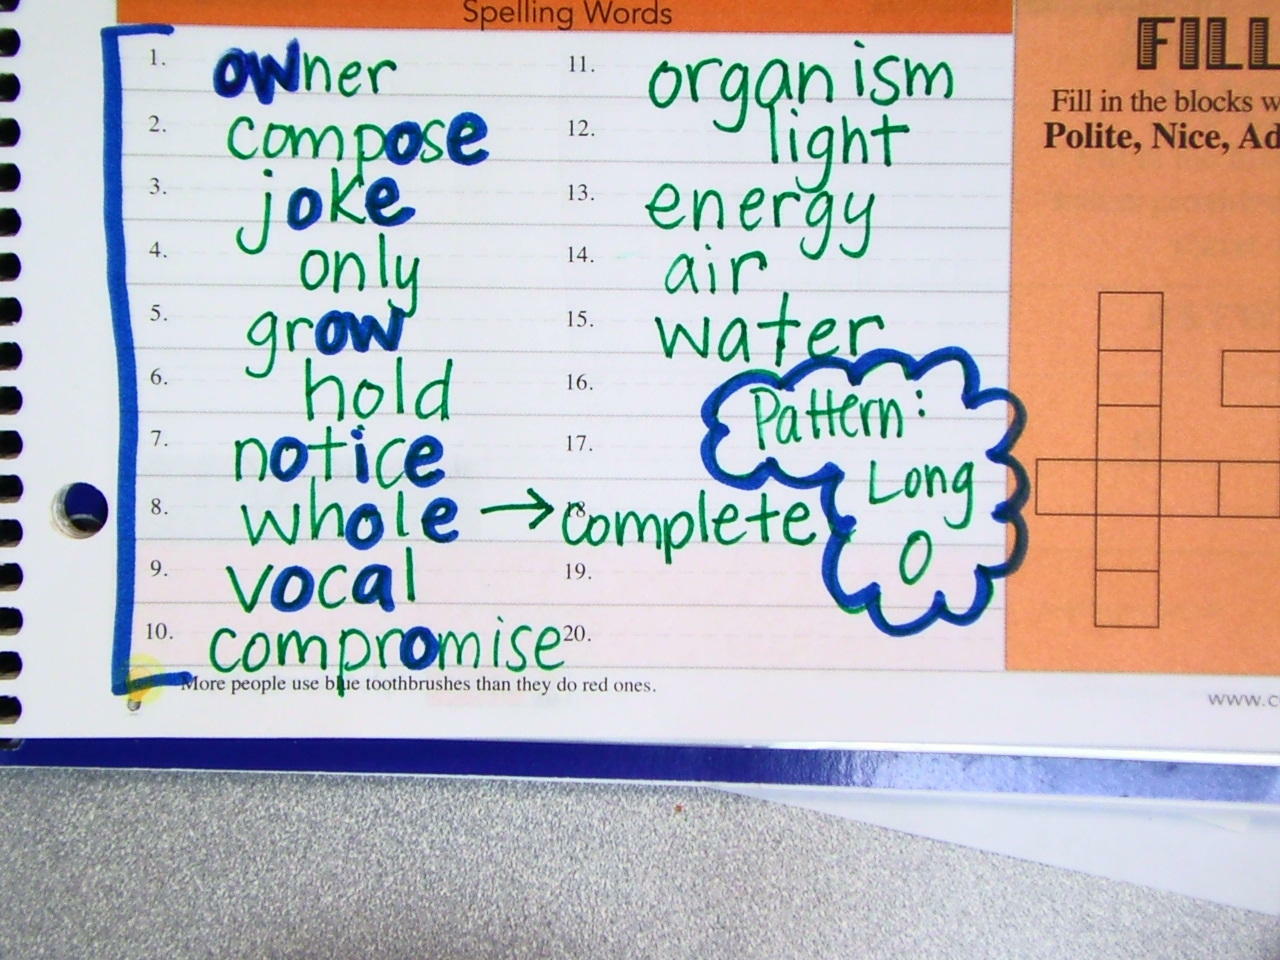 Spelling Words
1. owner
2. compose
3. joke
4. only
5. grow
6. hold
7. notice
8. whole → complete
9. vocal
10. compromise
11. organism
12. light
13. energy
14. air
15. water
16.
17.
18.
19.
20.
Pattern:
Long
O
More people use blue toothbrushes than they do red ones.
FILL
Fill in the blocks
Polite, Nice,
www.